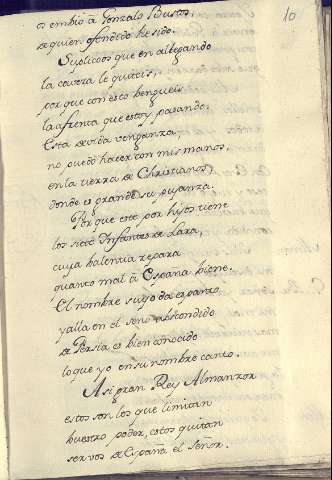 10
os embio â Gonzalo Bustos,
de quien ofendido he sido.
Suplicoos que en allegando
la caveza le quiteis,
por que con esto bengueis
la afrenta que estoy pasando.
Esta devida venganza,
no puedo hacer con mis manos,
en la tierra de Christianos,
donde es grande su pujanza.
Porque este por hijos tiene
los siete Infantes de Lara,
cuya balentia repara
quanto mal â España biene.
El nombre suyo da espanto,
y alla en el seno escondido
de Persia es bien conocido
lo que yo en su nombre canto.
Asi gran Rey Almanzor
estos son los que limitan
buestro poder, estos quitan
ser vos de España el señor.